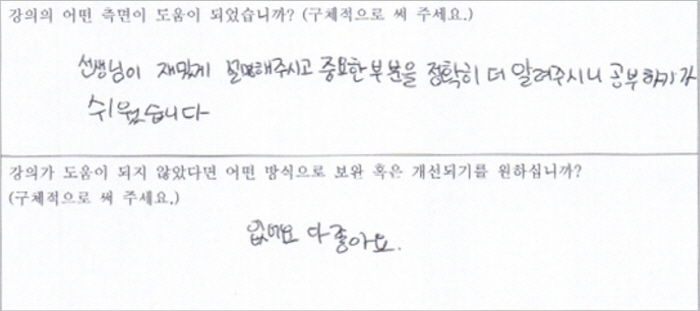 강의의 어떤 측면이 도움이 되었습니까? (구체적으로 써 주세요.)
선생님이 재밌게 설명해주시고 중요한 부분을 정확히 더 알려주시니 공부하기가
쉬웠습니다
강의가 도움이 되지 않았다면 어떤 방식으로 보완 혹은 개선되기를 원하십니까?
(구체적으로 써 주세요.)
없어요 다 좋아요.